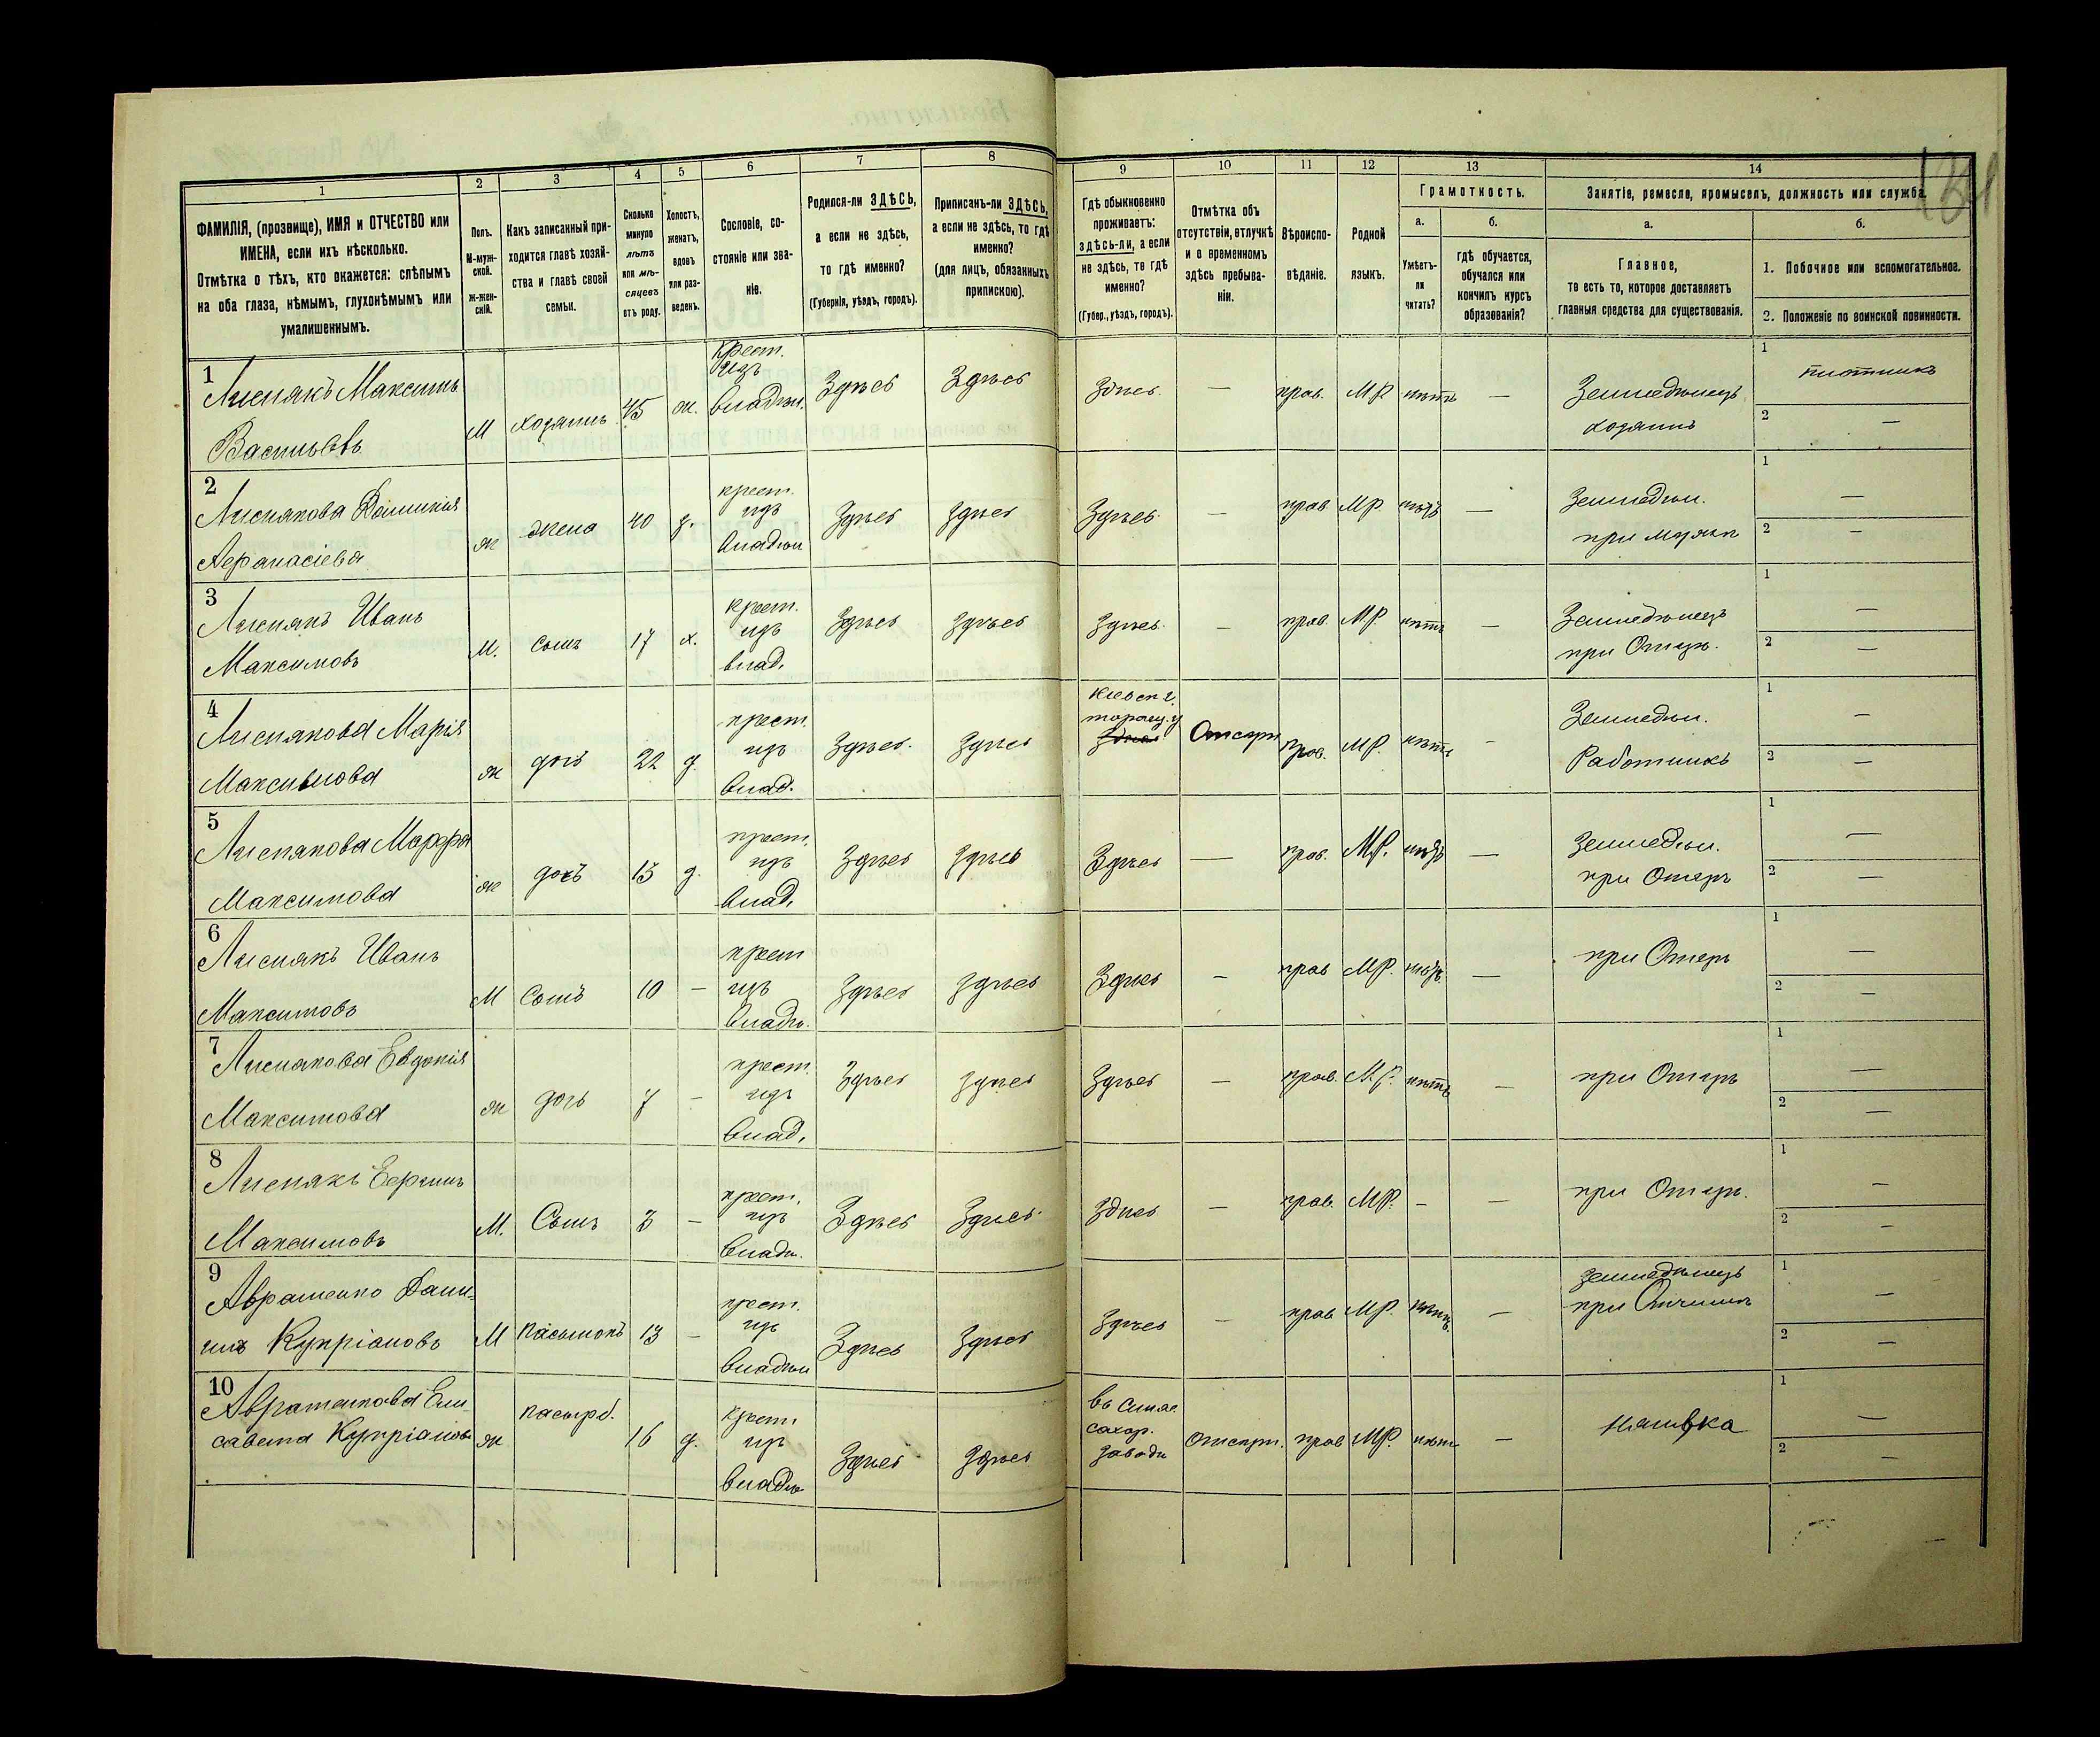 1
2
3
4
5
6
7
8
9
10
11
12
13
14
ФАМИЛІЯ, (прозвище), ИМЯ и ОТЧЕСТВО или
ИМЕНА, если ихъ нѣсколько.
Отмѣтка о тѣхъ, кто окажется: слѣпымъ
на оба глаза, нѣмымъ, глухонѣмымъ или
умалишеннымъ.
Полъ.
М-муж-
ской.
ж-жен-
скій.
Какъ записанный при-
ходится главѣ хозяй-
ства и главѣ своей
семьи.
Сколько
минуло
лѣтъ
или мѣ-
сяцевъ
отъ роду.
Холостъ,
женатъ,
вдовъ
или раз-
веденъ.
Сословіе, со-
стояніе или зва-
ніе.
Родился-ли ЗДѢСЬ,
а если не здѣсь,
то гдѣ именно?
(Губернія, уѣздъ, городъ).
Приписанъ-ли ЗДѢСЬ,
а если не здѣсь, то гдѣ
именно?
(для лицъ, обязанныхъ
припискою).
Гдѣ обыкновенно
проживаетъ:
здѣсь-ли, а если
не здѣсь, то гдѣ
именно?
(Губер., уѣздъ, городъ).
Отмѣтка объ
отсутствіи, отлучкѣ
и о временномъ
здѣсь пребыва-
ніи.
Вѣроиспо-
вѣданіе.
Родной
языкъ.
Грамотность.
а.
Умѣетъ-
ли
читать?
б.
гдѣ обучается,
обучался или
кончилъ курсъ
образованія?
Занятіе, ремесло, промыселъ, должность или служба.
а.
Главное,
то есть то, которое доставляетъ
главныя средства для существованія.
б.
1. Побочное или вспомогательное.
2. Положеніе по воинской повинности.
1
Лиснякъ Максимъ
Васильевъ
М
хозяинъ
45
ж.
крест.
изъ
владѣл.
Здѣсь
Здѣсь
Здѣсь.
—
прав.
МР
нѣтъ
—
Земледѣлецъ
хозяинъ
1
плотникъ
2
—
2
Лиснякова Домникія
Афанасіева
ж
жена
40
з.
крест.
изъ
владѣл
Здѣсь
здѣсь
Здѣсь
—
прав
МР.
нѣтъ
—
Земледѣл.
при мужѣ
1
—
2
—
3
Лиснякъ Иванъ
Максимовъ
М.
сынъ
17
х.
крест.
изъ
влад.
Здѣсь
здѣсь
здѣсь
—
прав.
МР
нѣтъ
—
Земледѣлецъ
при Отцѣ.
1
—
2
—
4
Лиснякова Марія
Максимова
ж
дочь
22
д.
крест.
изъ
влад.
Здѣсь.
здѣсь
Кіевск г.
здѣсь
Отсутв
прав.
МР.
нѣтъ
—
Земледѣл.
Работникъ
1
—
2
—
5
Лиснякова Марфа
Максимова
ж
дочь
15
д.
крест.
изъ
влад.
Здѣсь
здѣсь
Здѣсь
—
прав.
МР.
нѣтъ
—
Земледѣл.
при Отцѣ
1
—
2
—
6
Лиснякъ Иванъ
Максимовъ
М
Сынъ
10
—
крест
изъ
владѣ.
Здѣсь
здѣсь
Здѣсь
—
прав
МР.
нѣтъ
—
при Отцѣ
1
—
2
—
7
Лиснякова Евдокія
Максимова
ж
дочь
7
—
крест.
изъ
влад.
Здѣсь
здѣсь
Здѣсь
—
прав.
М.Р.
нѣтъ
—
при Отцѣ
1
—
2
—
8
Лиснякъ Ефимъ
Максимовъ
М.
Сынъ
3
—
крест.
изъ
владѣ.
Здѣсь
Здѣсь
Здѣсь
—
прав.
МР.
—
—
при Отцѣ.
1
—
2
—
9
Авраменко Дани-
илъ Купріановъ
М
пасынокъ
13
—
крест.
изъ
владѣл
Здѣсь
Здѣсь
Здѣсь
—
прав
МР.
нѣтъ
—
земледѣлецъ
при Отчимѣ
1
—
2
—
10
Авраменкова Ели
савета Купріанова
ж
16
д.
крест.
изъ
владѣ
Здѣсь
Здѣсь
сахар.
заводѣ
Отсутв.
прав
МР.
нѣтъ
—
нянька
1
—
2
—